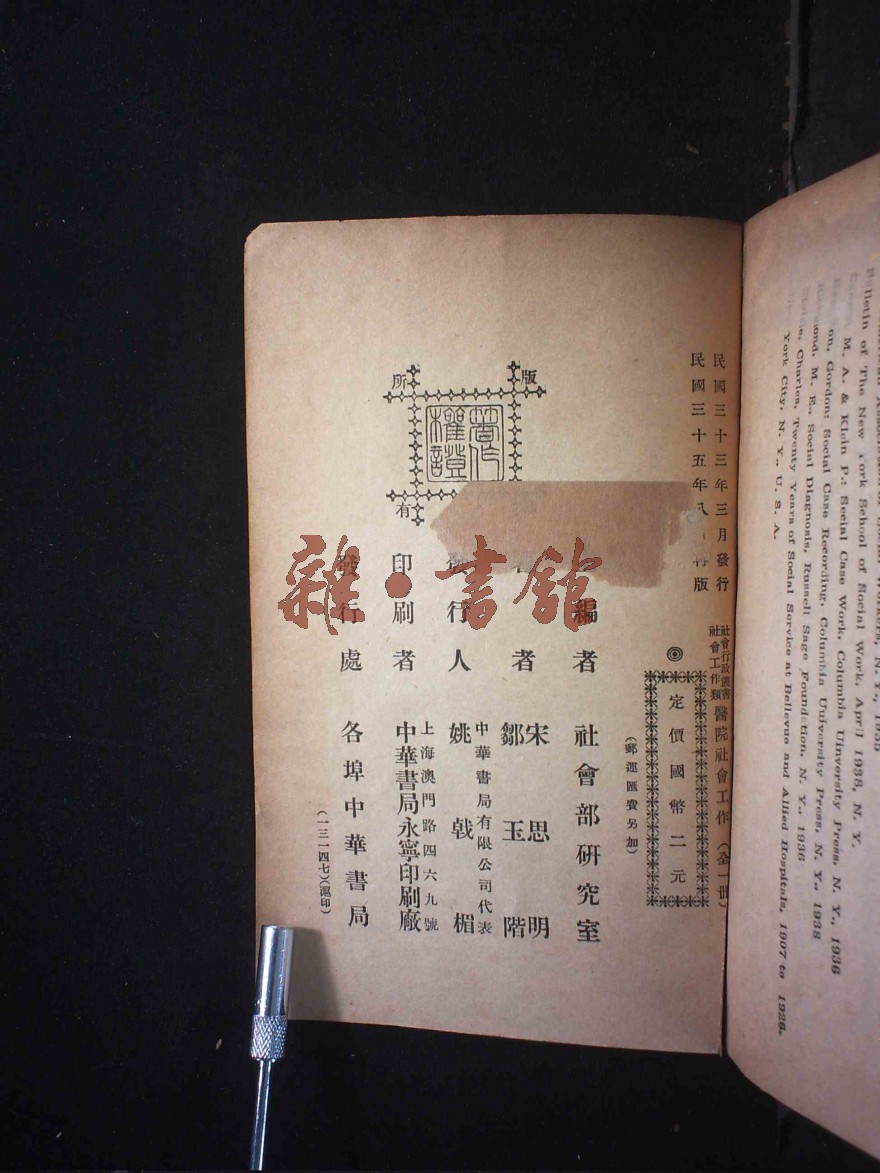 民國三十三年三月發行
民國三十五年八 再版
社會行政叢書
社會工作類
醫院社會工作(全一冊)
◎
定價國幣二元
(郵運匯費另加)
編者 社會部研究室
者 宋思明 鄒玉階
發行人 姚戟楣
中華書局有限公司代表
印刷者 中華書局永寧印刷廠
上海澳門路四六九號
發行處 各埠中華書局
(一三一四七)(滬印)
版
所
有
著作權證
雜·書館
Bulletin of The New York School of Social Work, April 1938, N. Y.
M. A. & Klein P.: Social Case Work, Columbia Uinversity Press, N. Y., 1936
on, Gordon: Social Case Recording, Columbia University Press, N. Y., 1938
mond, M. E., Social Diagnosis, Russell Sage Foundation, N. Y., 1936
e, Charles, Twenty Years of Social Service at Bellevue and Allied Hospitals, 1907 to 1926.
York City, N. Y., U. S. A.